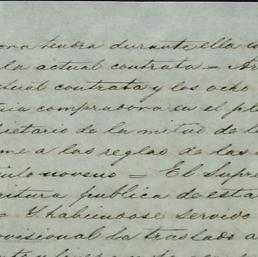 ona tendra durante ella
la actual contrata = Ar
ctual contrata y los ocho
cia compradora en el pl
ietario de la mitad de l
me a las reglas de las
ulo noveno = El Supre
critura publica de esta
Y habiendose servido
ovisional la traslado a